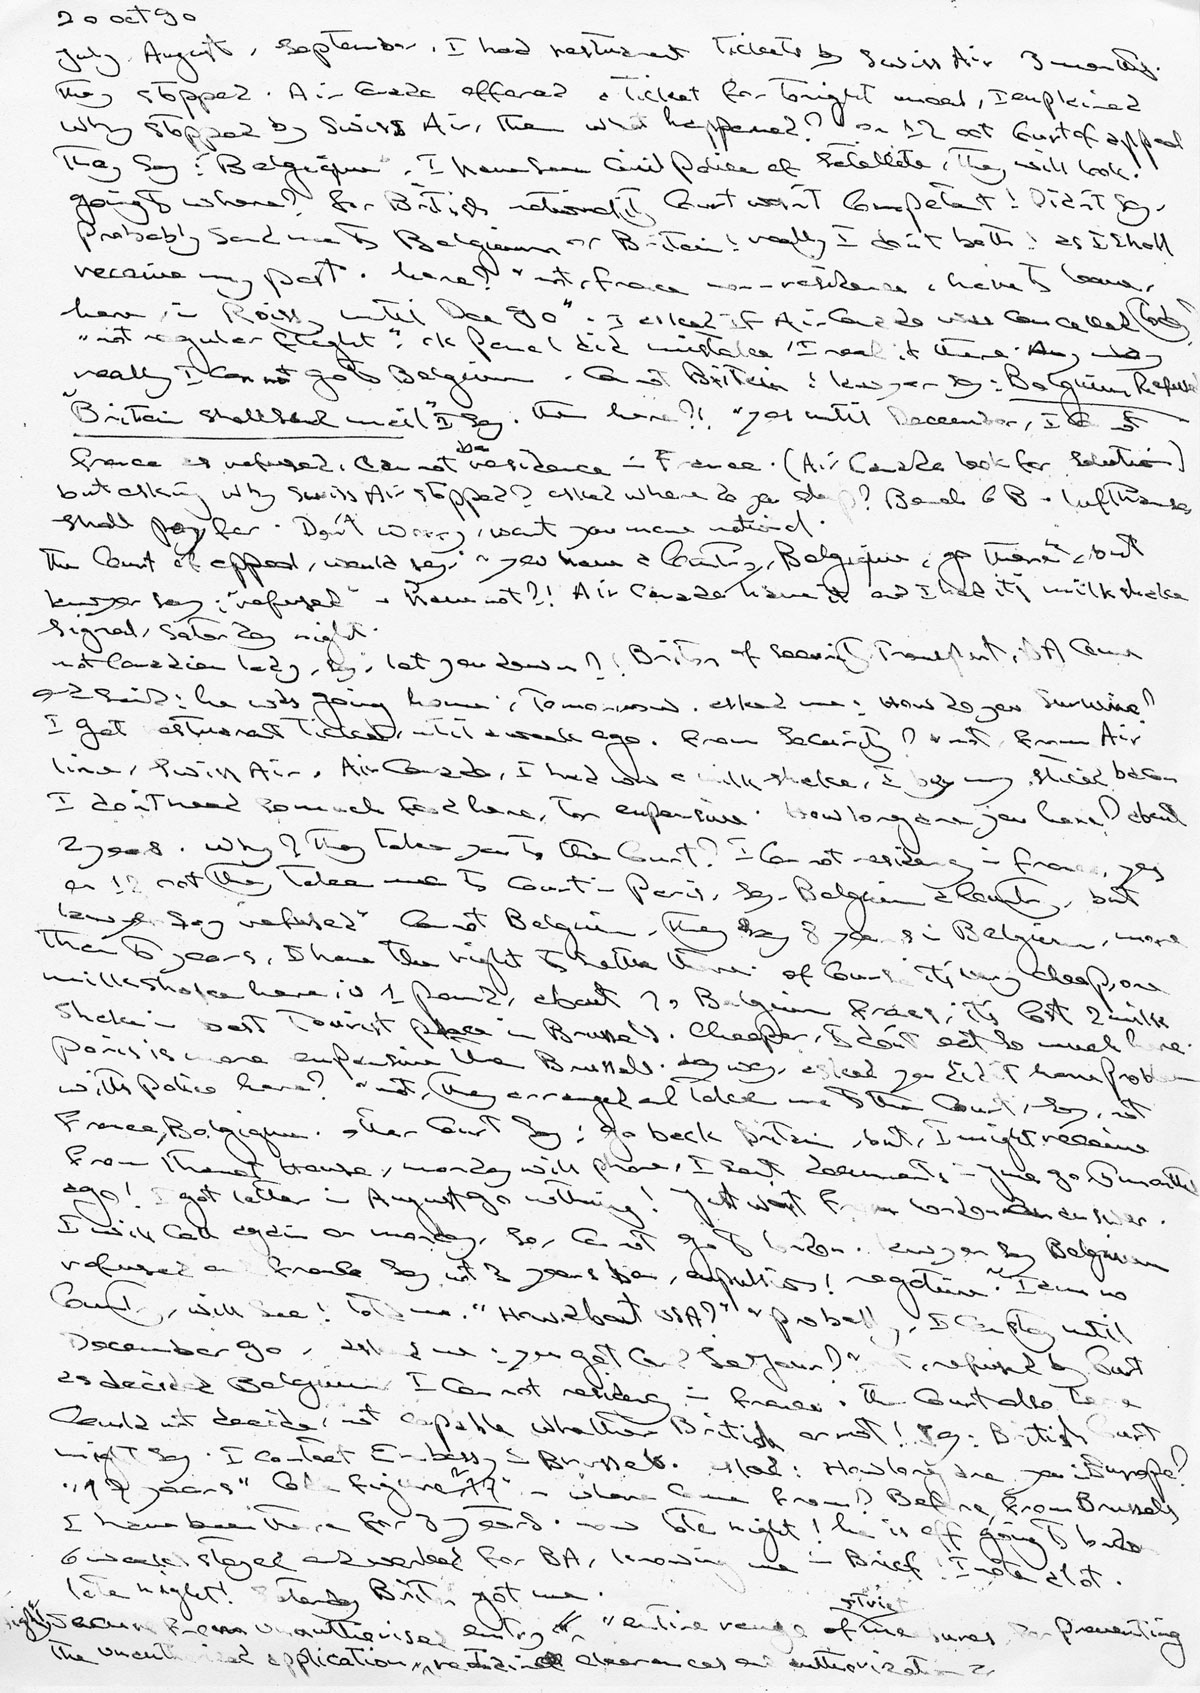 20 oct 90
July, August, September, I had restaurant tickets by Swiss Air 3 months.
They stopped. Air Canada offered a ticket for tonight meal, I explained
why stopped by Swiss Air, then what happened? on 12 oct Court of appeal
They say: "Belgique", I have seen Civil Police at Satellite, They will look.
going to where? for British nationality Court wasn't Competent! Didn't say,
Probably send me to Belgium or Britain! really I don't both! as I shall
receive my post. here? "not, France non-residence, have to leave,
here, in Roissy until Dec 90". I asked if Air Canada was Cancelled (lady)
"not regular flight": ok Panel did mistake! I read it there. Any way
really I Can not go to Belgium. Can not Britain! lawyer say: Belgium Refused
"Britain shall send mail" I say. then here?! "yes until December, I
France as refused, Can not be residence in France. (Air Canada look for solution)
but asking why Swiss Air stopped? asked where do you sleep? Bench 6 B. Lufthansa
shall pay for. Don't worry, want you more
The Court of appeal, would say: "you have a Country, Belgique, go there", but
lawyer say: "refused" Have not?! Air Canada have it and I had its milkshake
signed, Saturday night.
not Canadian lady, say, let you down?! Briton of Security Transport, BA Came
and said: he was going home, Tomorrow. asked me: How do you Survive?
I get restaurant Ticket, until a week ago. From Security? "not, from Air
line, Swiss Air, Air Canada, I had one milkshake, I buy my sliced bacon
I don't need so much food here, too expensive. How long are you here? about
2 years. Why? They take you to the Court? I Can not residency in France, yes
on 12 oct They Take me to Court in Paris, say Belgium a Country, but
lawyer say "refused" Can not Belgium, They say 8 years in Belgium, more
than 5 years, I have the right to settle there. of Course it's very cheap, one
milkshake here, is 1 pound, about 70 Belgium francs, its Cost 2 milk
shake in best Tourist place in Brussels. Cheaper, I don't eat so much here.
Paris is more expensive then Brussels. Any way, asked you didn't have problem
with Police here? "not, They arranged and Take me to the Court, say, not
France, Belgique. other Court say: go back Britain, but, I might receive
From Thanet House, monday will phone, I sent documents in June 90 5 months
ago! I got letter in August 90 nothing! Just wait from London an answer.
I will Call again on monday, so, Can not go to London. lawyer say Belgium
refused and France say not 3 years ban, expulsion! negative." I am no
Country, will see! told me. "How about USA?" "Probably, I Can stay until
December 90, asked me: you got Card Sejour?" "not, refused by Court
as decided Belgium I Can not residency in France. The Court also There
Could not decide, not capable whether British or not! Say: British Court
might say. I contact Embassy in Brussels. asked: How long are you in Europe?
where Came from? Before, from Brussels
I have been there for 8 years. now late night! he is off going to London
6 weeks stayed and worked for BA, knowing me in Brief! I note alot.
late night! Saturday Briton got me.
secure from unauthorised entry "entire range of strict measures for preventing
the unauthorised application, clearances and authorizations